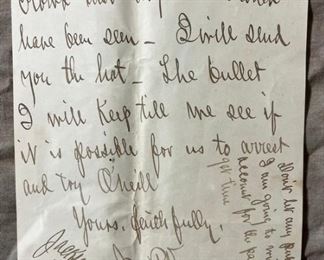 have been seen – I will send
you the hat – The bullet
I will keep till we see if
it is possible for us to arrest
and try O'neill
Yours, faithfully,
Don't let any
I am going to
account for the
got time